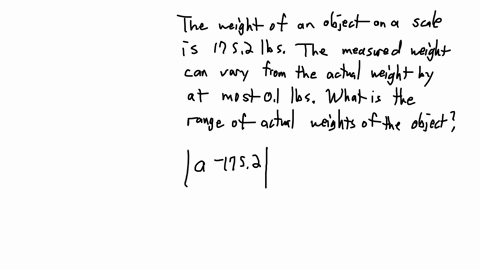 The weight of an object on a scale
is 175.2 lbs. The measured weight
can vary from the actual weight by
at most 0.1 lbs. What is the
range of actual weights of the object?
|a -175.2|